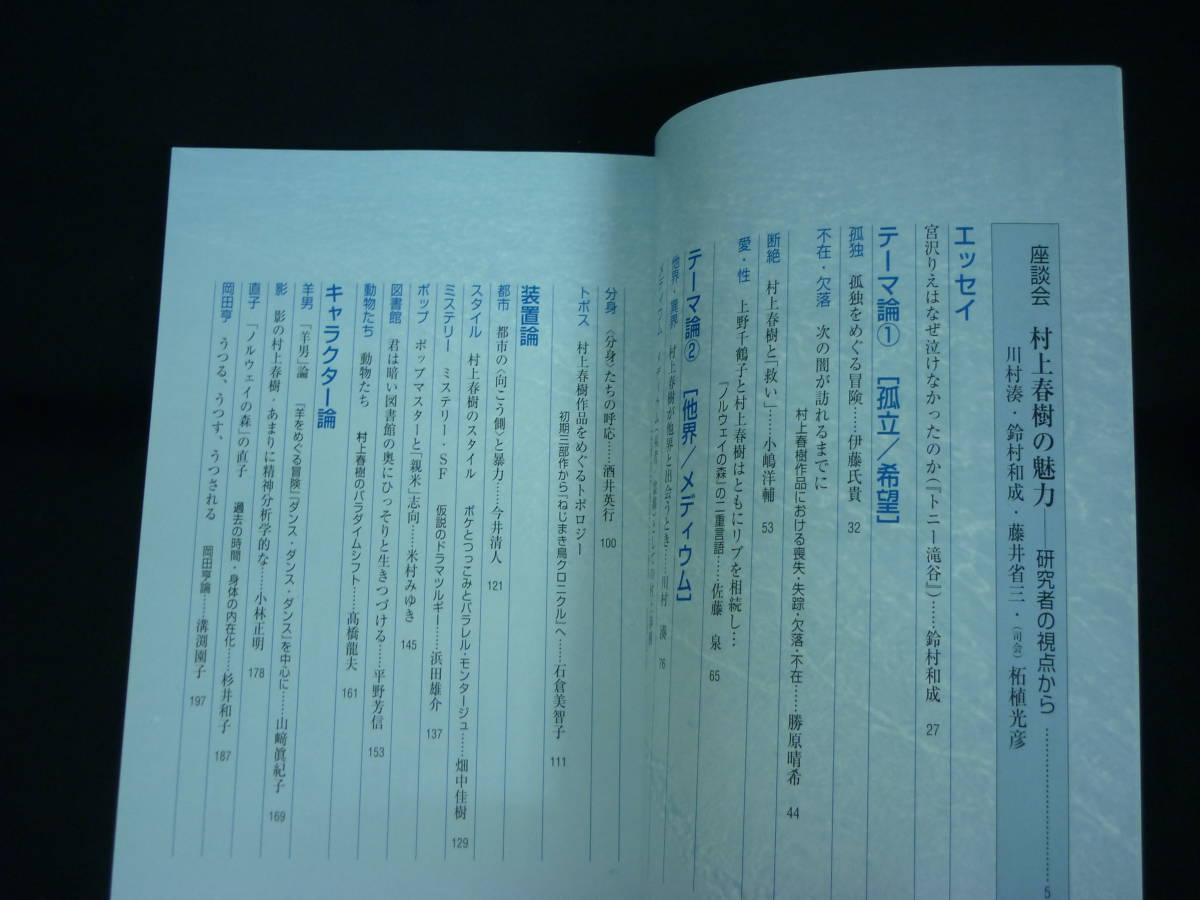 座談会　村上春樹の魅力――研究者の視点から……………………5
川村湊・鈴村和成・藤井省三・（司会）柘植光彦
エッセイ
宮沢りえはなぜ泣けなかったのか（『トニー滝谷』）……鈴村和成　27
テーマ論①　［孤立／希望］
孤独　孤独をめぐる冒険……伊藤氏貴　32
不在・欠落　次の闇が訪れるまでに
村上春樹作品における喪失・失踪・欠落・不在……勝原晴希　44
断絶　村上春樹と「救い」……小嶋洋輔　53
愛・性　上野千鶴子と村上春樹はともにリブを相続し…
『ノルウェイの森』の二重言語……佐藤　泉　65
テーマ論②　［他界／メディウム］
他界・異界　村上春樹が他界と出会うとき……川村　湊　76
メディウム
分身　〈分身〉たちの呼応……酒井英行　100
トポス　村上春樹作品をめぐるトポロジー
初期三部作から『ねじまき鳥クロニクル』へ……石倉美智子　111
装置論
都市　都市の〈向こう側〉と暴力……今井清人　121
スタイル　村上春樹のスタイル　ボケとつっこみとパラレル・モンタージュ……畑中佳樹　129
ミステリー　ミステリー・SF　仮説のドラマツルギー……浜田雄介　137
ポップ　ポップマスターと「親米」志向……米村みゆき　145
図書館　君は暗い図書館の奥にひっそりと生きつづける……平野芳信　153
動物たち　動物たち　村上春樹のパラダイムシフト……髙橋龍夫　161
キャラクター論
羊男　「羊男」論　『羊をめぐる冒険』『ダンス・ダンス・ダンス』を中心に……山﨑眞紀子　169
影　影の村上春樹・あまりに精神分析学的な……小林正明　178
直子　『ノルウェイの森』の直子　過去の時間・身体の内在化……杉井和子　187
岡田亨　うつる、うつす、うつされる　岡田亨論……溝渕園子　197